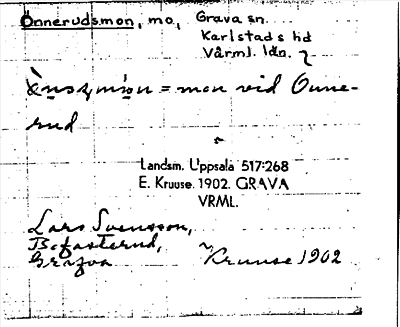 Önnerudsmon, mo, Grava sn.
Karlstads hd
Värml. län.
= mon vid Önne-
rud
Landsm. Uppsala 517:268
E. Kruuse. 1902. GRAVA
VRML.
Lars Svensson,
Grava Kruuse 1902